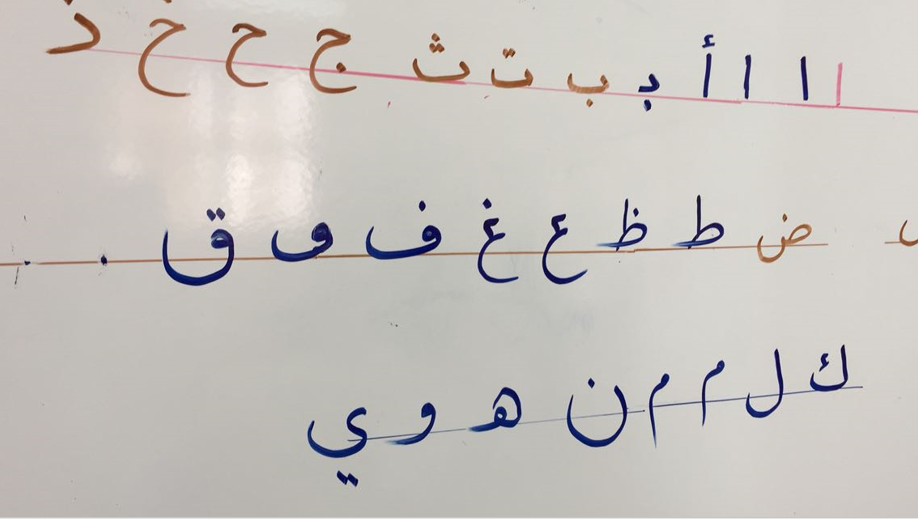 ا ا ا أ ب ب ت ث ج ح خ
ض ط ظ ع غ ف ف ق
ك ل م م ن ه و ي